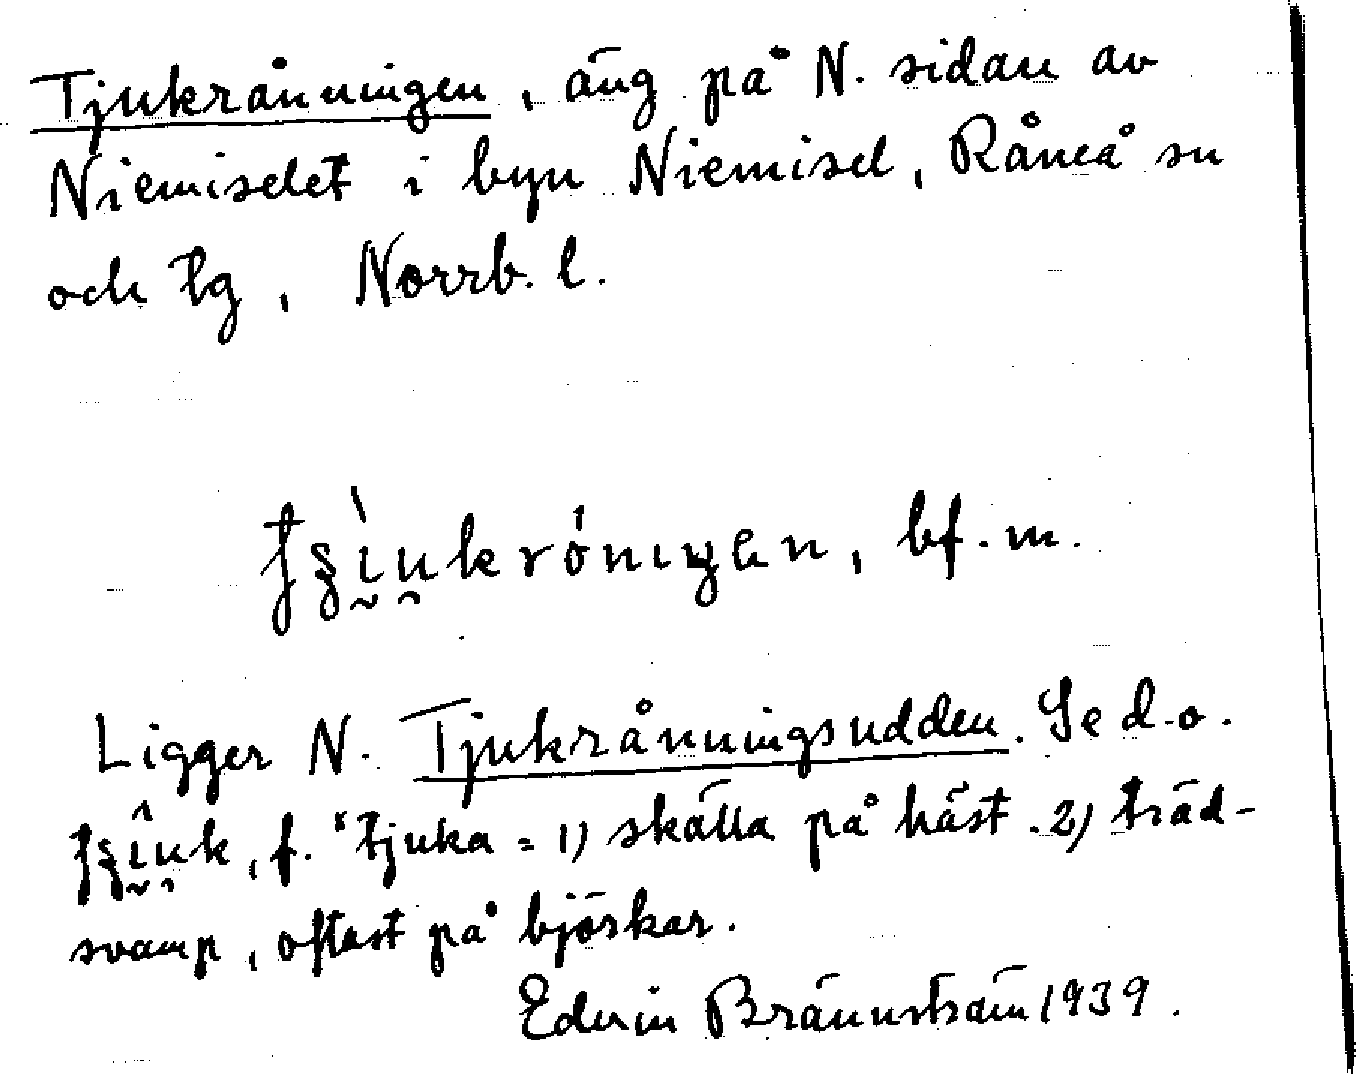 Tjukrånningen, äng på N. sidan av
Niemiselet i byn Niemisel, Råneå sn
och tg, Norrb. l.
bf. m.
Ligger N. Tjukrånningsudden. Se d.o.
f. *tjuka = 1) skälla på häst. 2) träd-
svamp, oftast på björkar.
Edvin Brännström 1939.